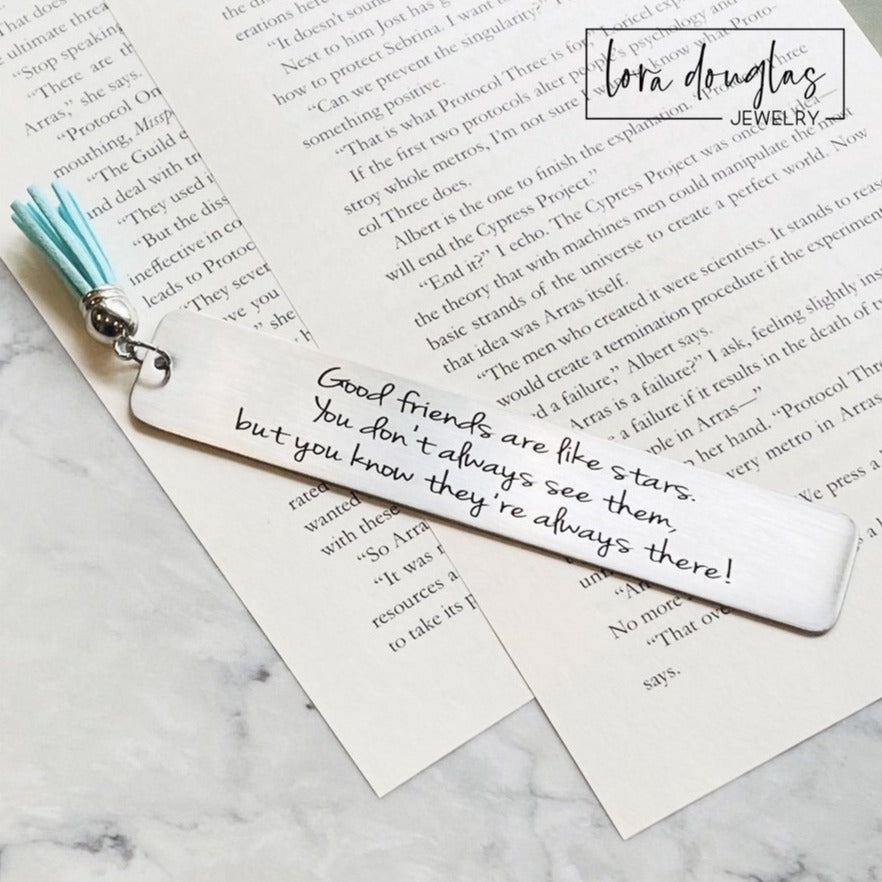 lora douglas
JEWELRY
That does
e ultimate threa
"Stop speaking
"There are th
Arras," she says.
"Protocol On
mouthing, Missp
"The Guild e
and deal with tr
"They used i
"But the diss
ineffective in co
leads to Protoc
"They sever
ve you
" she
erations here
"It doesn't sound
Next to him Jost has g
how to protect Sebrina. I want
"Can we prevent the singularity?"
something positive.
"That is what Protocol Three is for," Loricel explains.
If the first two protocols alter people's psychology and
stroy whole metros, I'm not sure I want to know what Proto-
col Three does.
Albert is the one to finish the explanation. "Protocol Three
will end the Cypress Project."
"End it?" I echo. The Cypress Project was once an idea—
the theory that with machines men could manipulate the most
basic strands of the universe to create a perfect world. Now
that idea was Arras itself.
"The men who created it were scientists. It stands to reaso
would create a termination procedure if the experiment
d a failure," Albert says.
Arras is a failure?" I ask, feeling slightly inse
a failure if it results in the death of
ple in Arras—"
her hand. "Protocol Three
very metro in Arras
Ve press a
Good friends are like stars.
You don't always see them,
but you know they're always there!
rated
wanted
with these
"So Arra
"It was
resources a
to take its p
No more
"That ove
says.